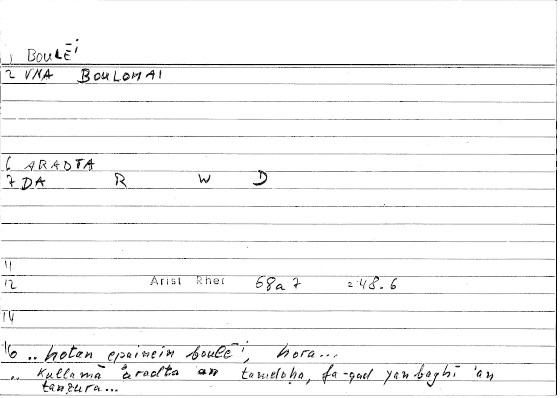 1 BOULĒi
2 VMA BOULOMAI
6 ARADTA
7 DA R W D
11
12 Arist Rhet 68a7 =48.6
14
16 .. hotan epainein boulēi, hora...
.. kullamā aradta an tamdaḥa, fa-qad yanbaghī 'an
tanẓura...